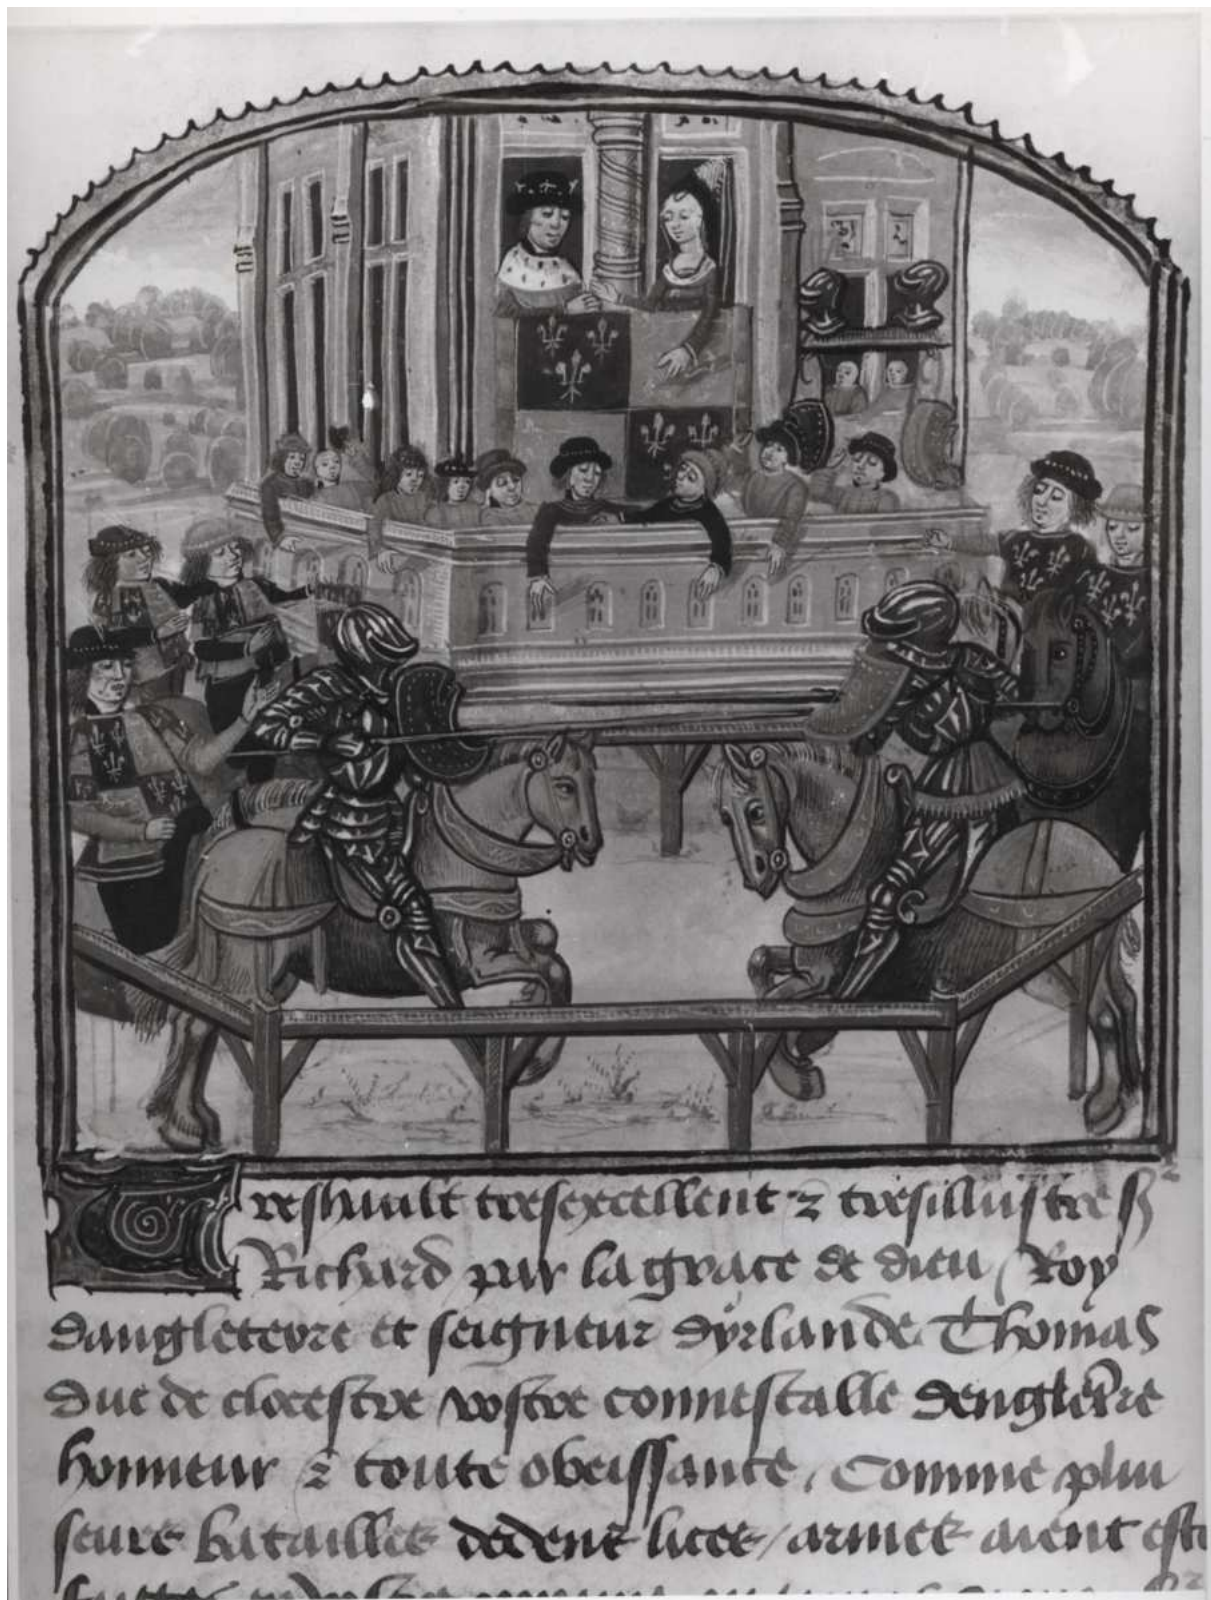 Treshault tresexcellent ⁊ tresillustre sʳ
Richard par la grace de dieu / Roy
dangleterre et seigneur dyrlande Thomas
duc de clocestre vostre connestalle dengletrre
honneur ⁊ toute obeissance / Comme pluu
seurs batailles dedens lices / armes aient este